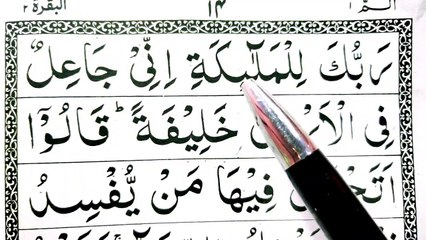 البقرة ٢ ١٤ الٓمّٓ ١
رَبُّكَ لِلْمَلٰٓئِكَةِ اِنِّیْ جَاعِلٌ
فِی خَلِیْفَةً ؕ قَالُوْٓا
فِیْهَا مَنْ یُّفْسِدُ